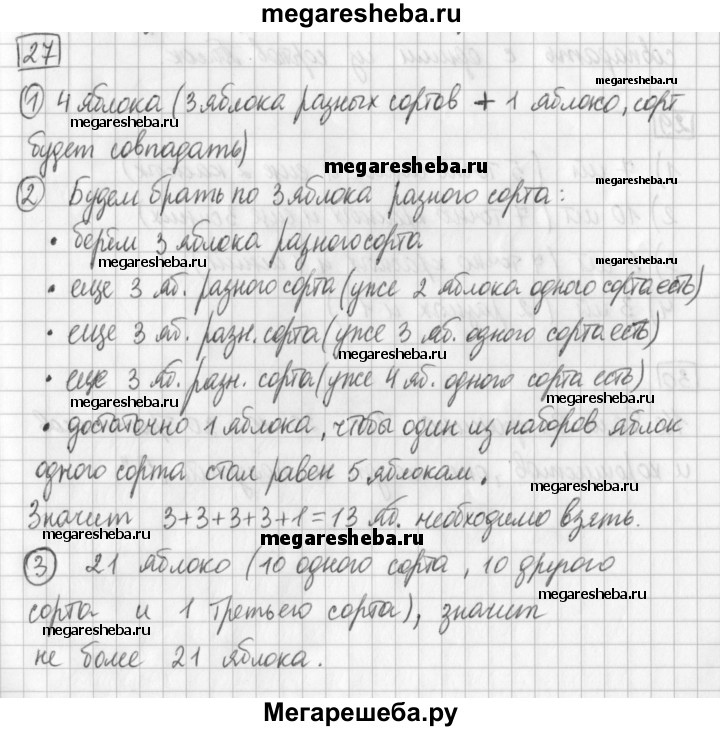 megaresheba.ru
27
megaresheba.ru
1) 4 яблока (3 яблока разных сортов + 1 яблоко, сорт
megaresheba.ru
будет совпадать)
megaresheba.ru
2) Будем брать по 3 яблока разного сорта:
megaresheba.ru
• берём 3 яблока разного сорта
megaresheba.ru
• еще 3 яб. разного сорта (уже 2 яблока одного сорта есть)
megaresheba.ru
• еще 3 яб. разн. сорта (уже 3 яб. одного сорта есть)
megaresheba.ru
• еще 3 яб. разн. сорта (уже 4 яб. одного сорта есть)
megaresheba.ru
megaresheba.ru
• достаточно 1 яблока, чтобы один из наборов яблок
megaresheba.ru
одного сорта стал равен 5 яблокам.
megaresheba.ru
Значит 3+3+3+3+1=13 яб. необходимо взять.
megaresheba.ru
megaresheba.ru
3) 21 яблоко (10 одного сорта, 10 другого
megaresheba.ru
сорта и 1 третьего сорта), значит
megaresheba.ru
не более 21 яблока.
Мегарешеба.ру